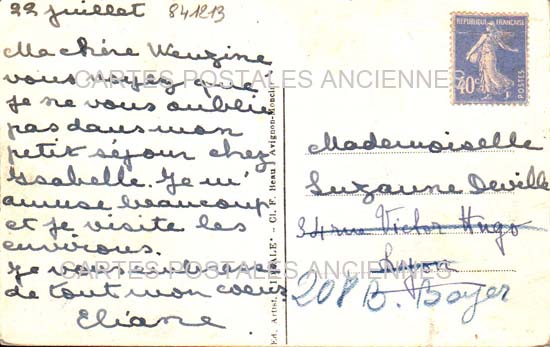 22 juillet 841213
Ma chère
vous voyez que
je ne vous oublie
pas dans mon
petit séjour chez
Isabelle. Je m'
amuse beaucoup
et je visite les
environs.
Je vous embrasse
de tout mon coeur
Eliane
CARTES POSTALES ANCIENNES
CARTES POSTALES ANCIENNES
Cl. F. Beau, Avignon
REPUBLIQUE FRANÇAISE
40c
POSTES
Mademoiselle
Suzanne Deville
34 rue Victor Hugo
Lyon
208 B. Boyer